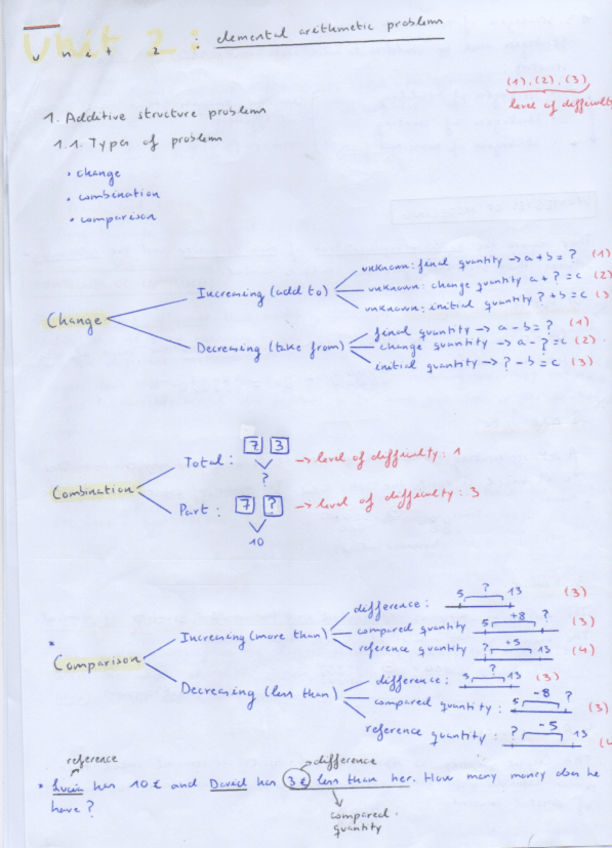 Unit 2: elemental arithmetic problems
(1), (2), (3),
level of difficulty
1. Additive structure problems
1.1. Types of problem
• change
• combination
• comparison
Change
Increasing (add to)
unknown: final quantity → a + b = ? (1)
unknown: change quantity a + ? = c (2)
unknown: initial quantity ? + b = c (3
Decreasing (take from)
final quantity → a - b = ? (1)
change quantity → a - ? = c (2)
initial quantity → ? - b = c (3)
Combination
Total: 7 3 → level of difficulty: 1
?
Part: 7 ? → level of difficulty: 3
10
* Comparison
Increasing (more than)
difference: 5 ? 13 (3)
compared quantity 5 +8 ? (3)
reference quantity ? +5 13 (4)
Decreasing (less than)
difference: ? 13 (3)
compared quantity: 5 -8 ? (3)
reference quantity: ? -5 13 (4
reference
difference
• Lucia has 10 £ and David has 3£ less than her. How many money does he
have?
compared
quantity